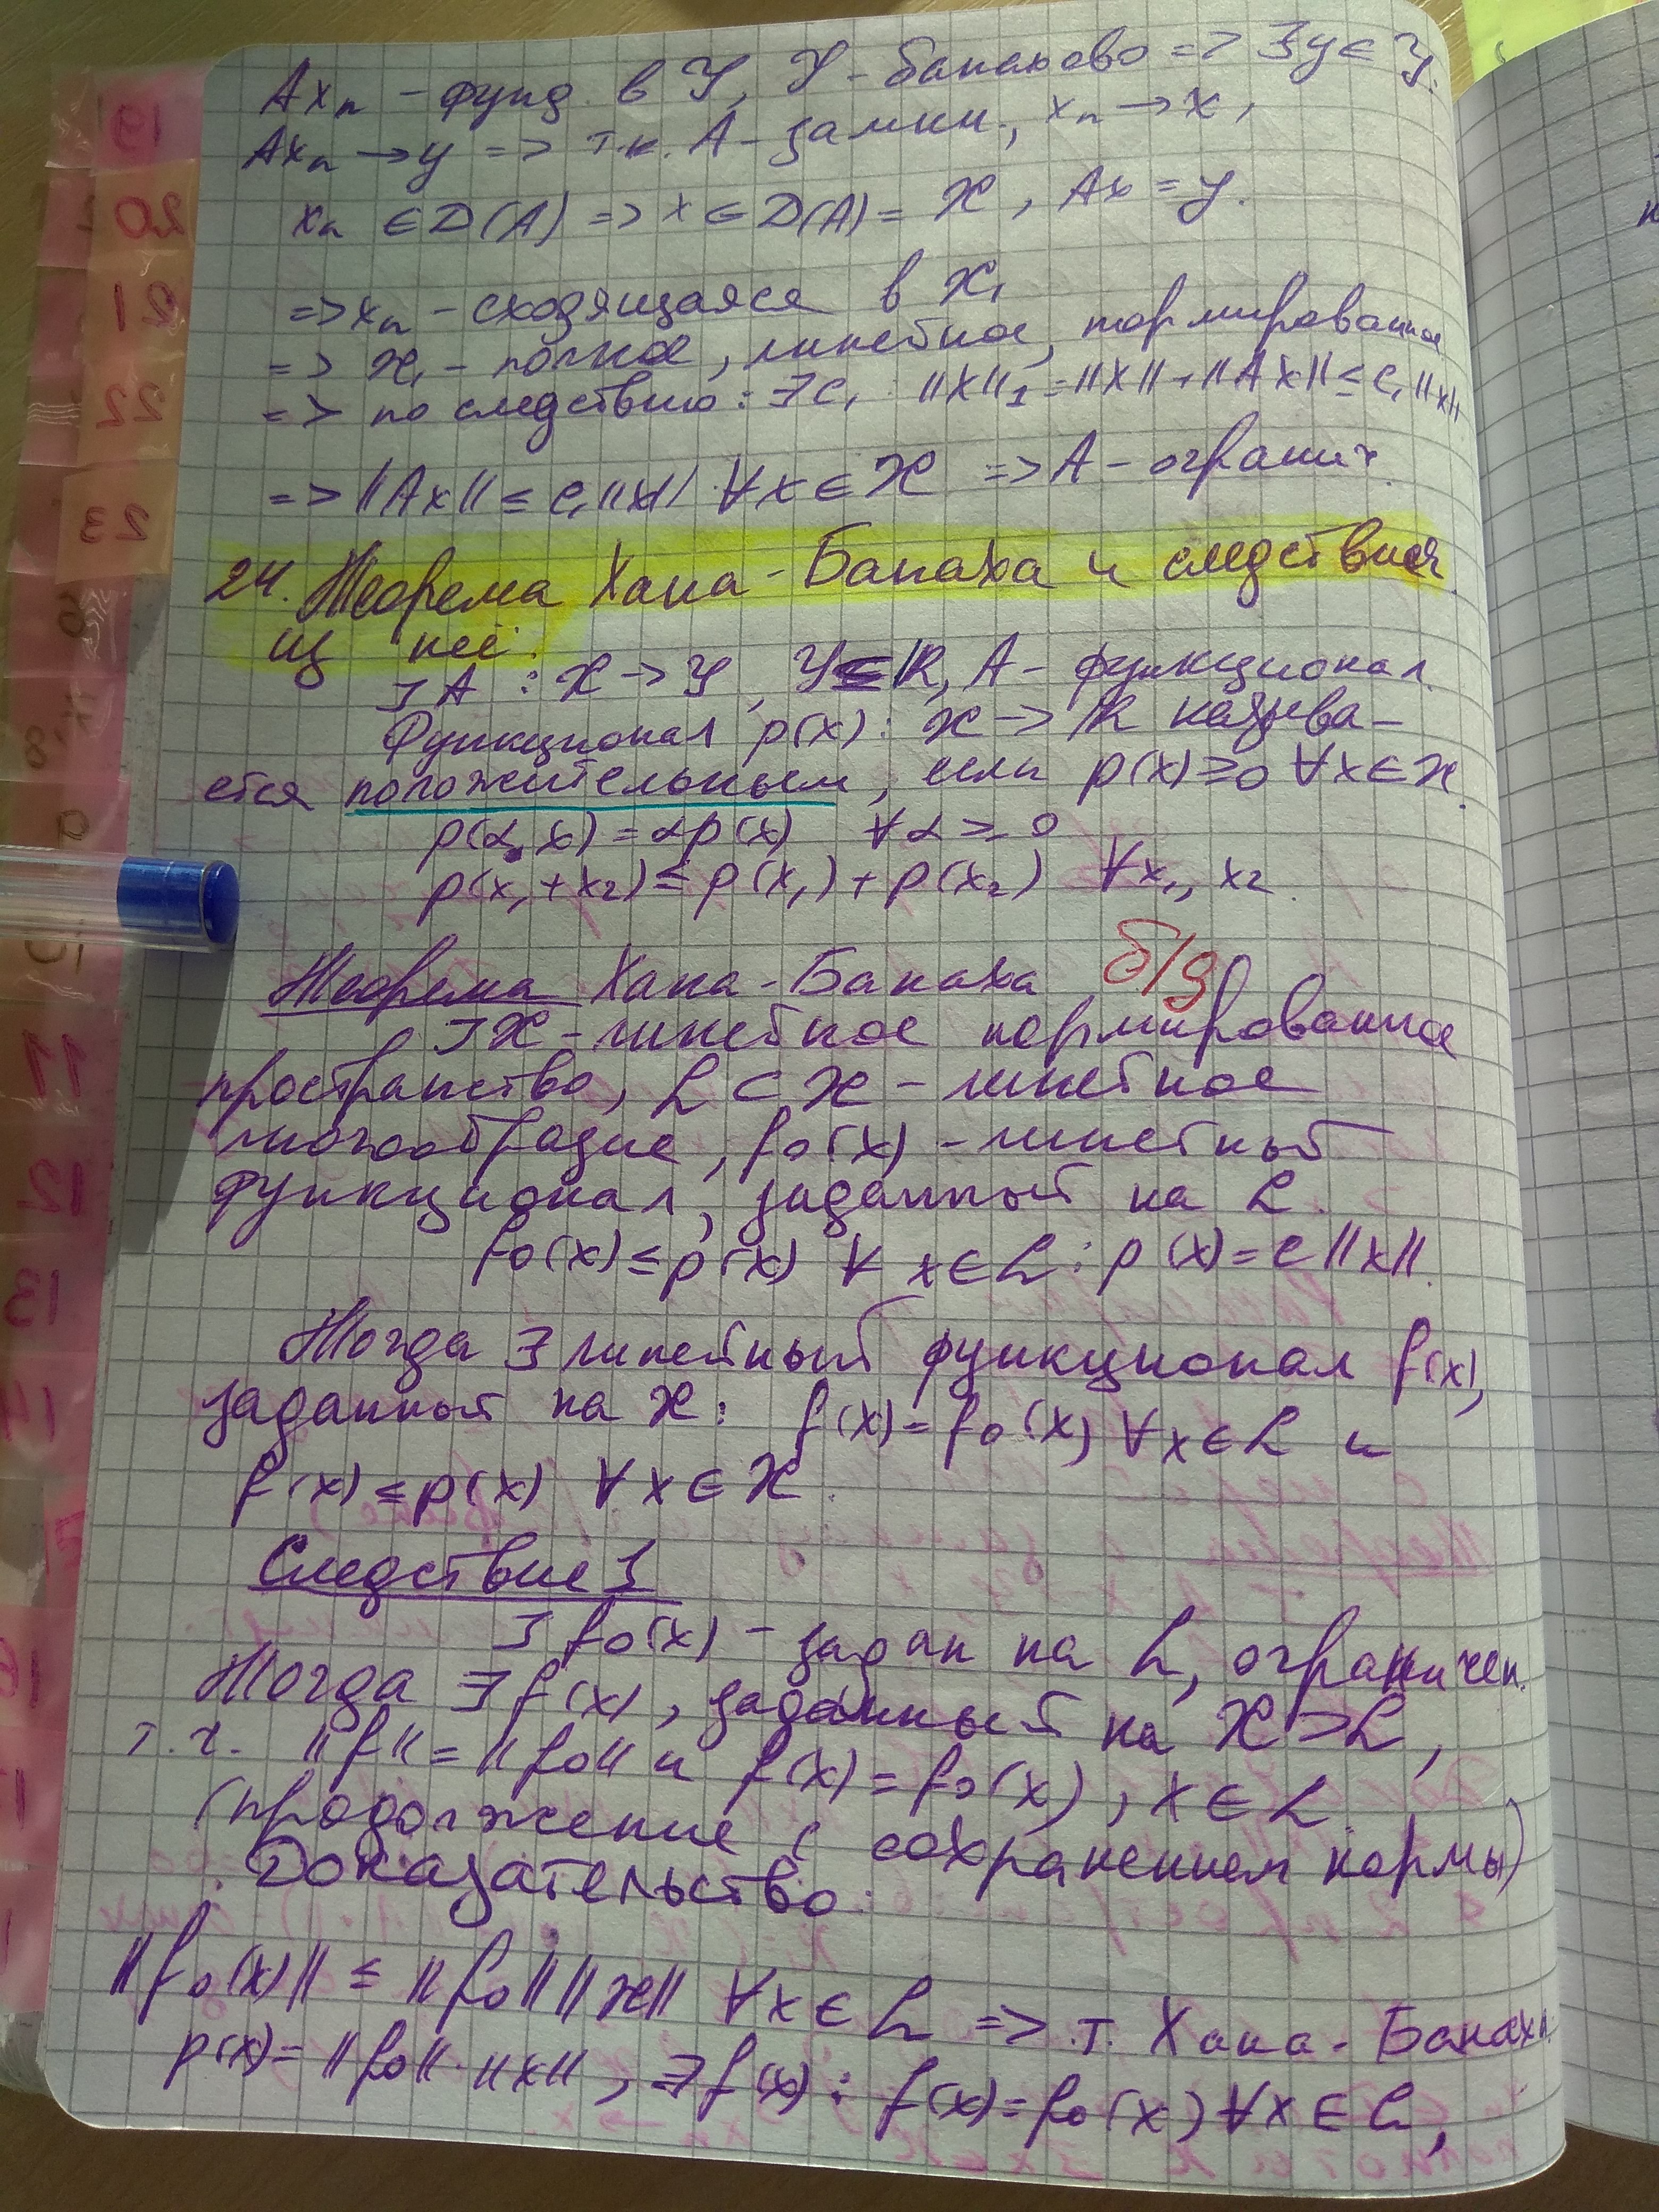 Axₙ - фунд. в Y, Y - банахово => ∃y ∈ Y.
Axₙ → y => т.к. A - замкн., xₙ → x,
xₙ ∈ D(A) => x ∈ D(A) = X, Ax = y.
=> xₙ - сходящаяся в X₁
=> X₁ - полное, линейное, нормированное
=> по следствию: ∃c₁ : ||x||₁ = ||x|| + ||Ax|| ≤ c₁||x||
=> ||Ax|| ≤ c₁||x|| ∀x ∈ X => A - огранич.
24. Теорема Хана-Банаха и следствия
из неё.
∃ A : X → Y, Y ⊆ ℝ, A - функционал.
Функционал p(x): X → ℝ называ-
ется положительным, если p(x) ≥ 0 ∀x ∈ X.
p(α x) = αp(x) ∀α ≥ 0
p(x₁ + x₂) ≤ p(x₁) + p(x₂) ∀x₁, x₂
Теорема Хана-Банаха б/д
∃ X - линейное нормированное
пространство, L ⊂ X - линейное
многообразие, f₀(x) - линейный
функционал, заданный на L.
f₀(x) ≤ p(x) ∀ x ∈ L : p(x) = c||x||.
Тогда ∃ линейный функционал f(x),
заданный на X: f(x) = f₀(x) ∀x ∈ L и
f(x) ≤ p(x) ∀x ∈ X.
Следствие 1
∃ f₀(x) - задан на L, ограничен.
Тогда ∃ f(x), заданный на X ⊃ L,
т.ч. ||f|| = ||f₀|| и f(x) = f₀(x), x ∈ L.
(продолжение с сохранением нормы)
Доказательство:
||f₀(x)|| ≤ ||f₀|| ||x|| ∀x ∈ L => т. Хана-Банаха
p(x) = ||f₀|| · ||x||, ∃ f(x) : f(x) = f₀(x) ∀x ∈ L,
19
20
21
22
23
11
12
13
14